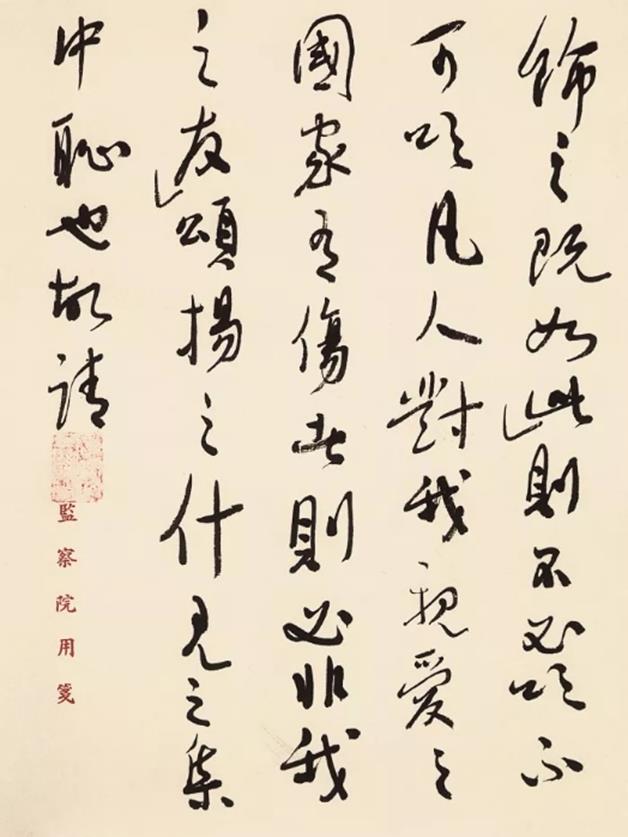 飾之既如此則不必咏不
可咏凡人對我親愛之
國家有傷者則必非我
之友頌揚之什見之集
中恥也故請
監察院用箋